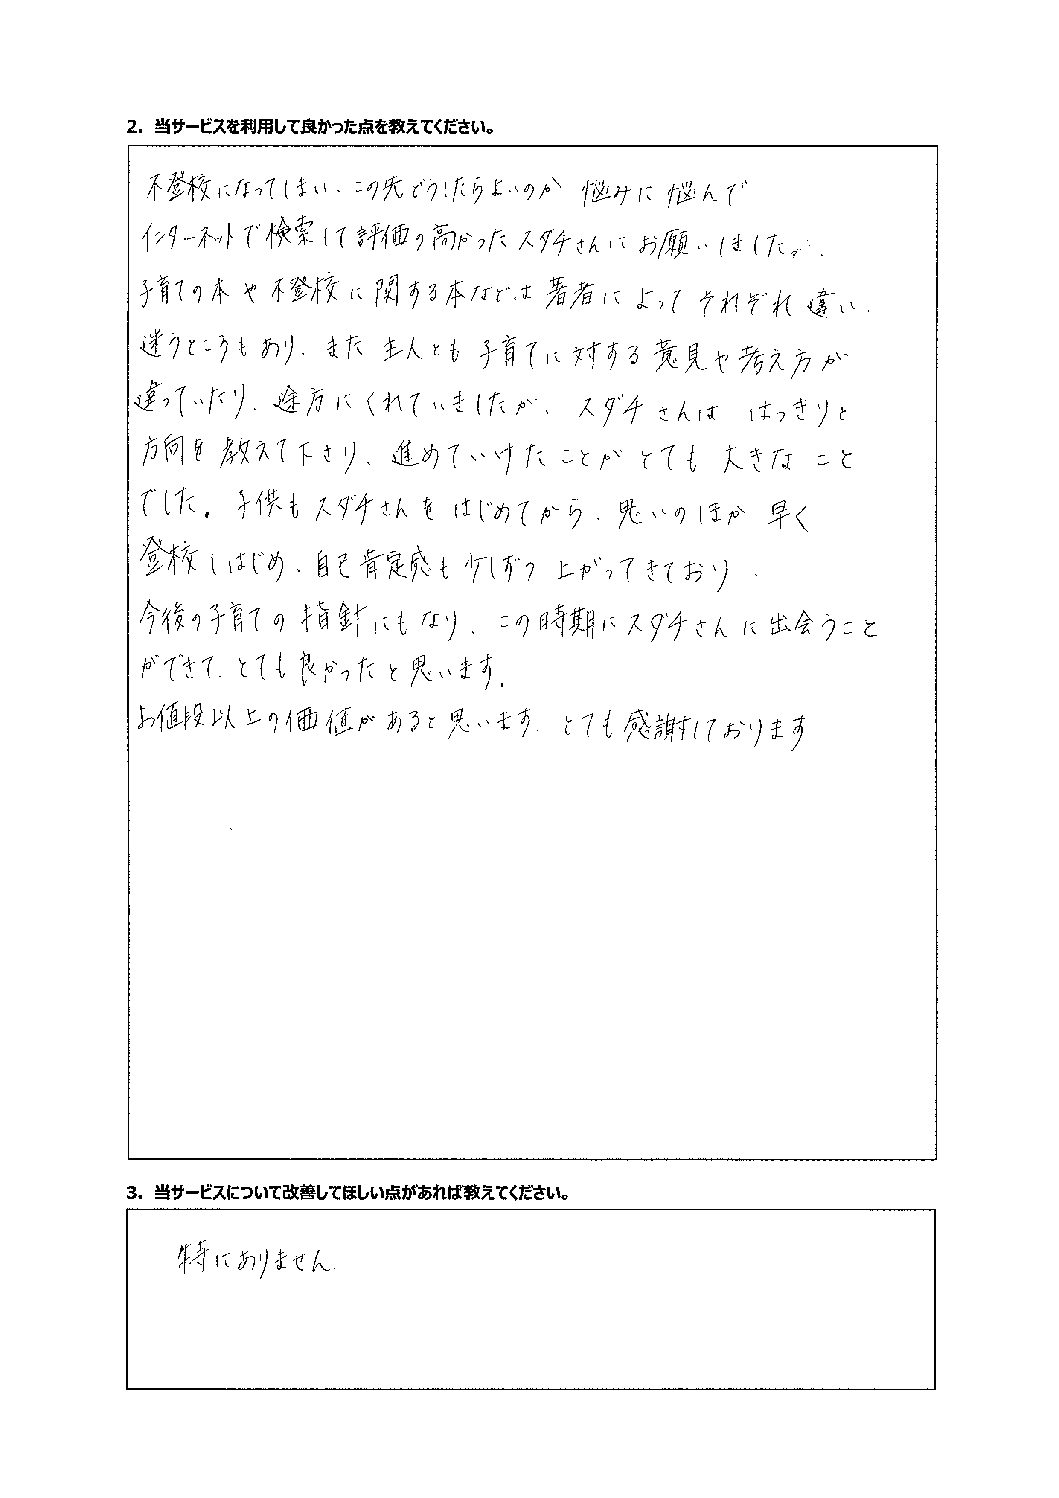 2. 当サービスを利用して良かった点を教えてください。
不登校になってしまい、この先どうしたらよいのか 悩みに悩んで
インターネットで検索して評価の高かったスダチさんにお願いしましたが、
子育ての本や不登校に関する本などは著者によってそれぞれ違い、
迷うところもあり、また主人とも子育てに対する意見や考え方が
違っていたり、途方にくれていましたが、スダチさんは はっきりと
方向を教えて下さり、進めていけたことがとても大きなこと
でした。子供もスダチさんをはじめてから、思いのほか早く
登校しはじめ、自己肯定感も少しずつ上がってきており、
今後の子育ての指針にもなり、この時期にスダチさんに出会うこと
ができて、とても良かったと思います。
お値段以上の価値があると思います。とても感謝しております
3. 当サービスについて改善してほしい点があれば教えてください。
特にありません。